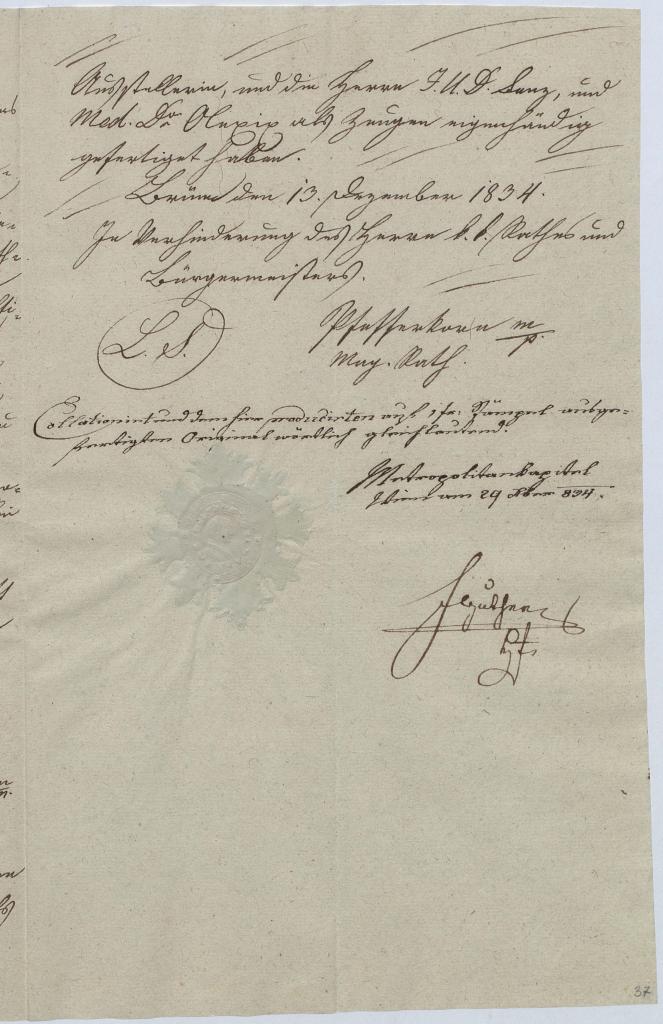 Ausstellerin, und die Herrn J. U. D. Lenz, und
Med. Dr Olexix als Zeugen eigenhändig
gefertiget haben.
Brünn den 13. Dezember 1834.
In Verhinderung des Herrn k. k. Rathes und
Bürgermeisters.
L. S.
Pfefferkorn m/p.
Mag. Rath.
Collationirt und dem hier producirten auf 1 fr: Stämpel ausge=
fertigten Original wörtlich gleichlautend.
Metropolitankapitel
Wien am 29 834.
37